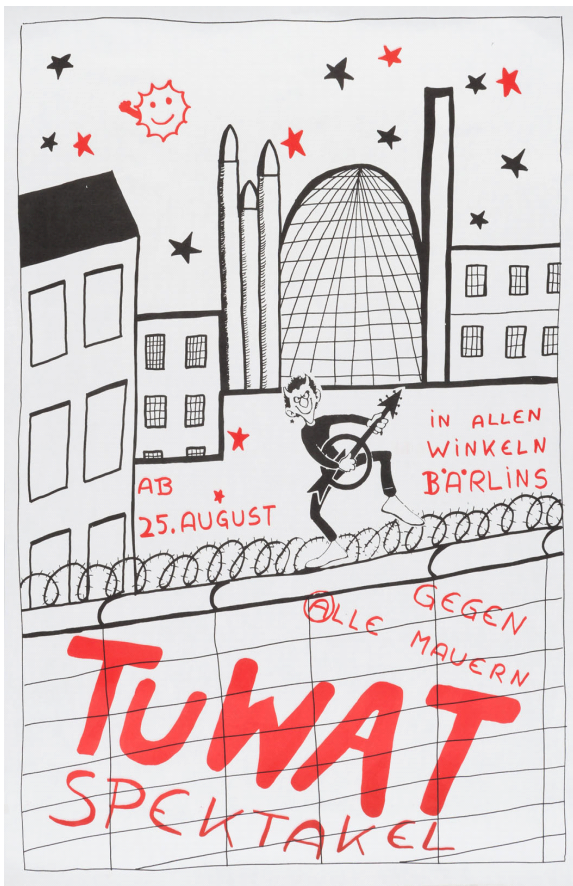 AB
25. AUGUST
iN ALLEN
WiNKELN
BÄRLiNS
ALLE
GEGEN
MAUERN
TUWAT
SPEKTAKEL